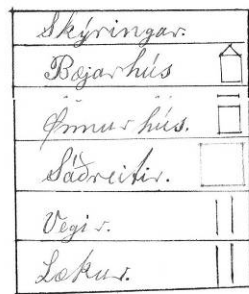 Skýringar.
Bæjarhús
Önnur hús.
Sáðreitir.
Vegir.
Lækur.